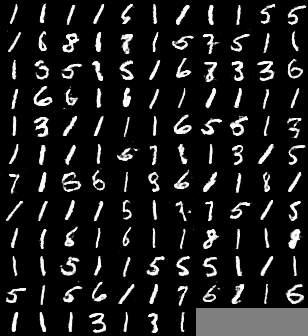 1 1 1 1 6 1 1 1 1 5 5
1 6 8 1 8 1 5 7 5 1 1
1 3 5 1 5 1 6 8 3 3 6
1 6 6 1 6 1 1 1 1 1 1
1 3 1 1 1 1 6 5 5 1 7
1 1 1 1 5 7 1 1 3 1 5
7 1 5 6 1 8 6 1 1 8 1
1 1 1 1 5 1 7 7 5 1 5
1 1 6 1 6 1 1 8 1 1 8
1 1 5 1 1 5 5 5 1 1 1
5 1 5 6 1 1 7 6 8 1 6
1 1 1 3 1 3 1